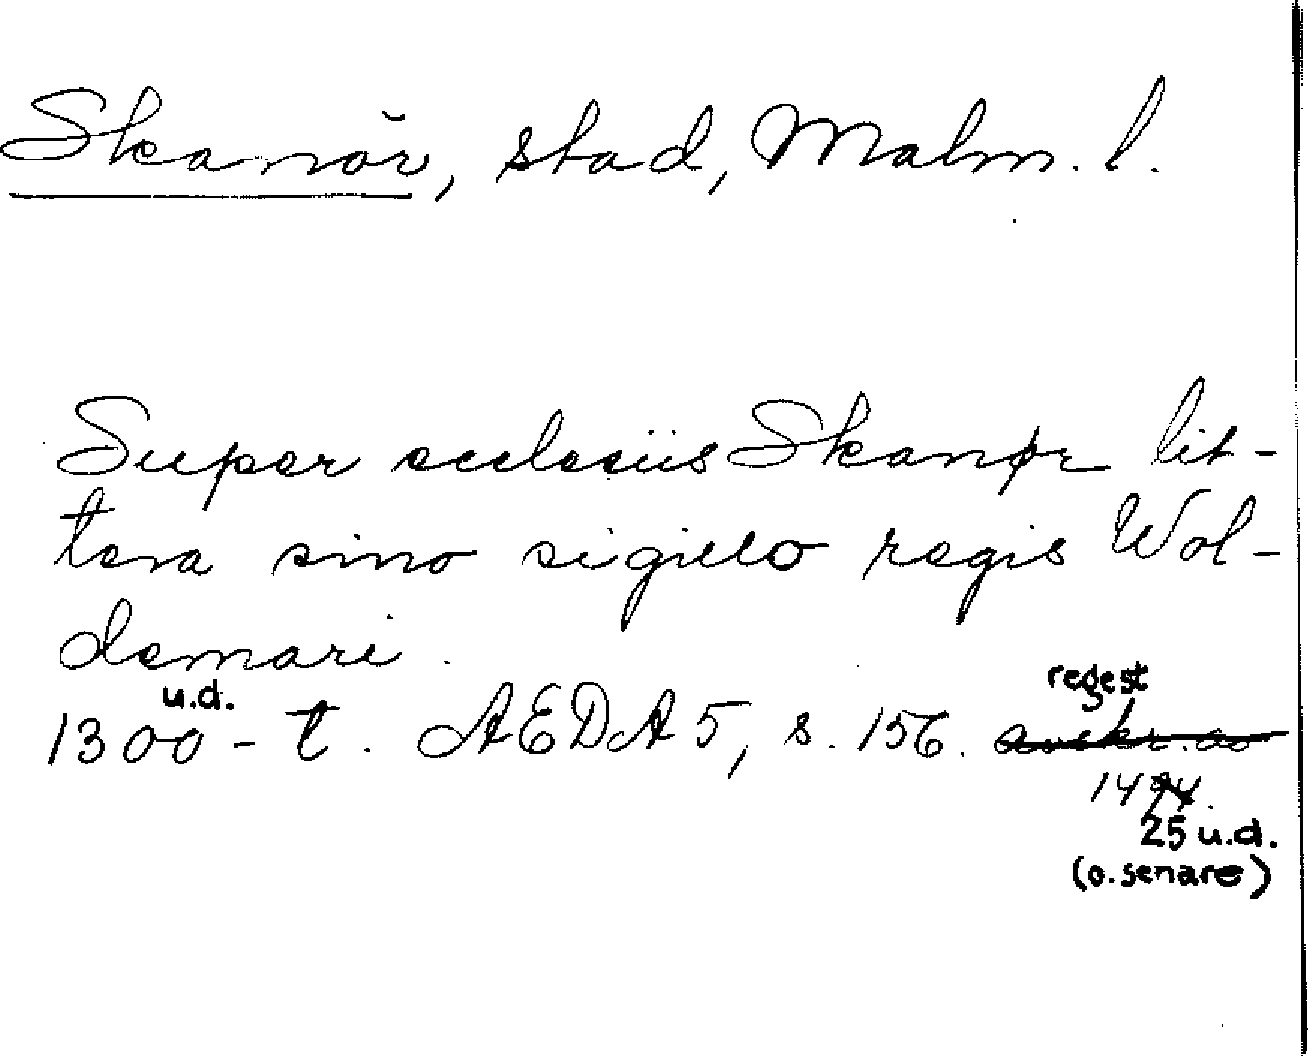 Skanör, stad, Malm. l.
Super ecclesiis Skanør lit-
tera sino sigillo regis Wol-
demari.
u.d.
1300-t. AEDA 5, s. 156.
regest
14
25 u.d.
(o. senare)